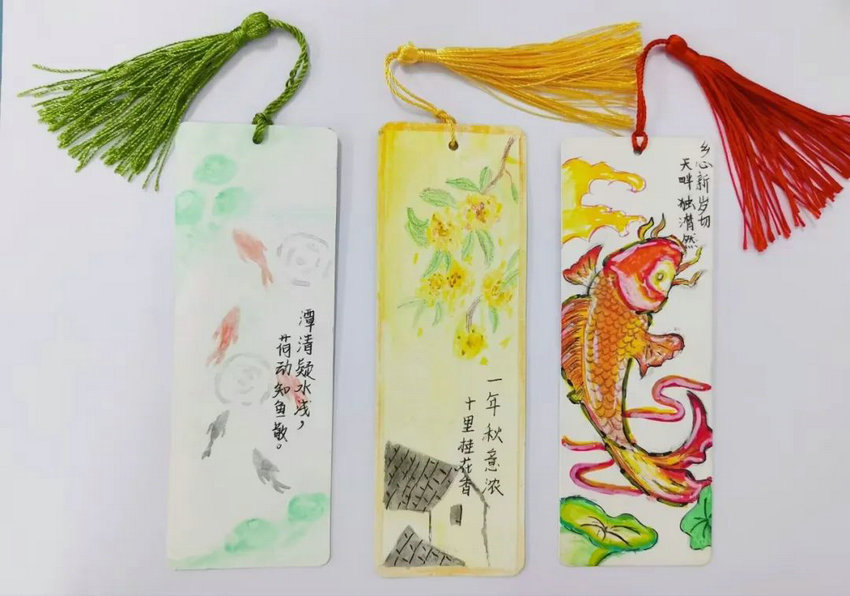 潭清疑水浅，
荷动知鱼散。
一年秋意浓
十里桂花香
乡心新岁切
天畔独潸然